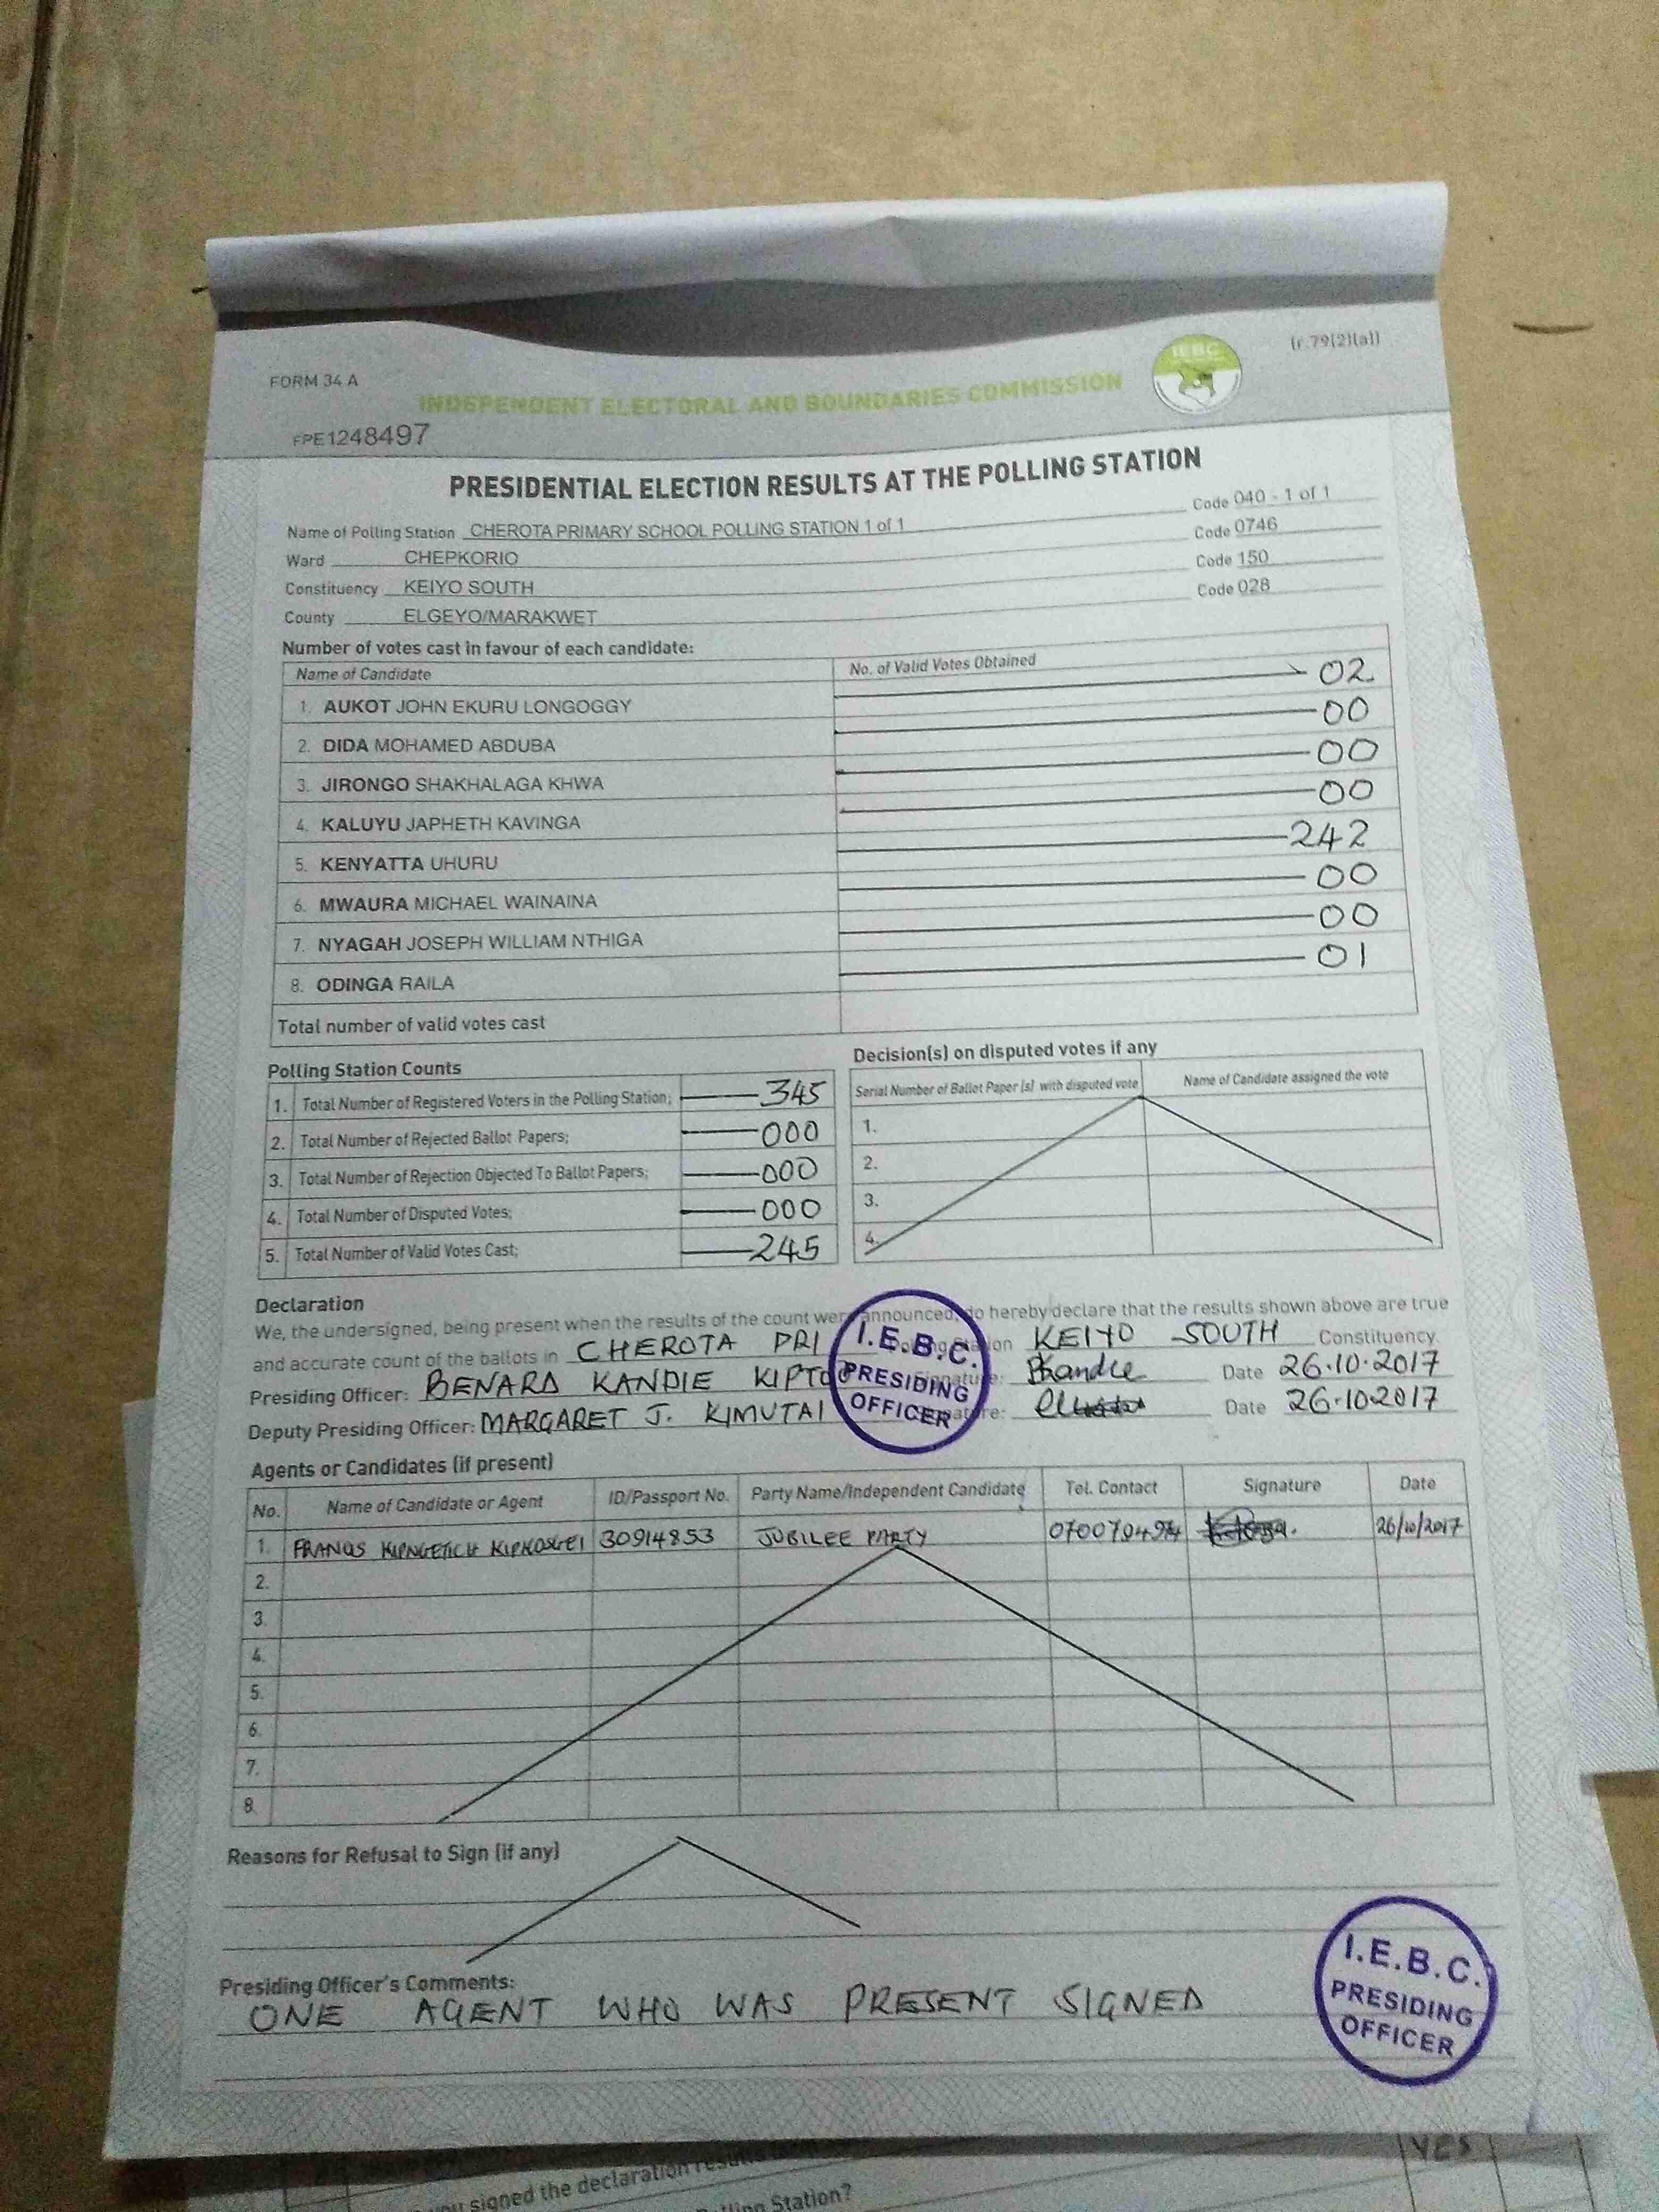 FORM 34 A
(r.79(2)(a))
INDEPENDENT ELECTORAL AND BOUNDARIES COMMISSION
IEBC
FPE1248497
PRESIDENTIAL ELECTION RESULTS AT THE POLLING STATION
Name of Polling Station CHEROTA PRIMARY SCHOOL POLLING STATION 1 of 1 Code 040 - 1 of 1
Ward CHEPKORIO Code 0746
Constituency KEIYO SOUTH Code 150
County ELGEYO/MARAKWET Code 028
Number of votes cast in favour of each candidate:
Name of Candidate No. of Valid Votes Obtained
1. AUKOT JOHN EKURU LONGOGGY 02
2. DIDA MOHAMED ABDUBA 00
3. JIRONGO SHAKHALAGA KHWA 00
4. KALUYU JAPHETH KAVINGA 00
5. KENYATTA UHURU 242
6. MWAURA MICHAEL WAINAINA 00
7. NYAGAH JOSEPH WILLIAM NTHIGA 00
8. ODINGA RAILA 01
Total number of valid votes cast
Polling Station Counts
1. Total Number of Registered Voters in the Polling Station; 345
2. Total Number of Rejected Ballot Papers; 000
3. Total Number of Rejection Objected To Ballot Papers; 000
4. Total Number of Disputed Votes; 000
5. Total Number of Valid Votes Cast; 245
Decision(s) on disputed votes if any
Serial Number of Ballot Paper (s) with disputed vote Name of Candidate assigned the vote
1.
2.
3.
4.
Declaration
We, the undersigned, being present when the results of the count were announced, do hereby declare that the results shown above are true
and accurate count of the ballots in CHEROTA PRI KEIYO SOUTH Constituency.
Presiding Officer: BENARD KANDIE Signature: Date 26.10.2017
Deputy Presiding Officer: MARGARET J. KIMUTAI Date 26.10.2017
I.E.B.C.
PRESIDING
OFFICER
Agents or Candidates (if present)
No. Name of Candidate or Agent ID/Passport No. Party Name/Independent Candidate Tel. Contact Signature Date
1. FRANCIS KIPNGETICH KIPKOSGEI 30914853 JUBILEE PARTY 26/10/2017
2.
3.
4.
5.
6.
7.
8.
Reasons for Refusal to Sign (if any)
Presiding Officer's Comments:
ONE AGENT WHO WAS PRESENT SIGNED
I.E.B.C.
PRESIDING
OFFICER
YES
signed the declaration
Station?